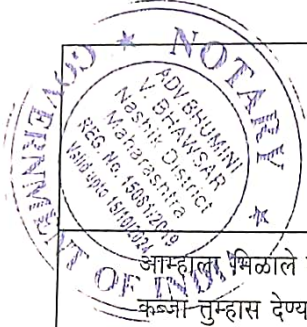 NOTARY
GOVERNMENT OF INDIA
ADV. BHUMINI
V. BHAWSAR
Nashik District
Maharashtra
REG. No. 15061/2019
Valid upto 15/10/2024
आम्हाला मिळाले
कब्जा तुम्हास देण्य